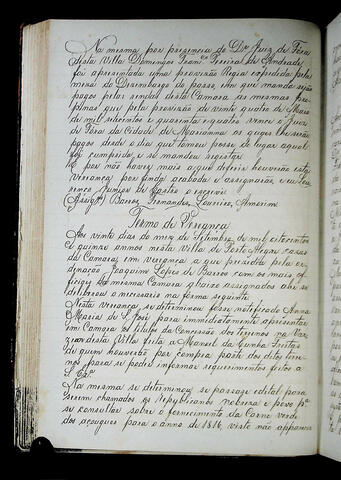 Na mesma por presencia do Dr. Juiz de Fóra
desta Villa Domingos Franco Pereira de Andrade
foi apresentada uma provizão Regia expedida pela
meza do Dezembargo do paço, em que manda sejão
pagos pelas rendas desta Camara, as mesmas pro
pinas que pela provizão de vinte quatro de Maio
de mil setecentos e quarenta e quatro vence o Juiz
de Fóra da Cidade de Marianna os quaes lhe serão
pagos desde o dia que tomou posse do lugar aqual
foi cumprida e se mandou registar.
E por não haver mais a que deferir houverão esta
veriança por finda acabada e assignarão, eu Lou
renço Junior de Castro o escrevi.
Assigdo Barros, Fernandes, Loureiro, Amorim
Termo de Vereança
Aos vinte dias do mez de Setembro de mil oitocentos
e quinze annos nesta Villa de Porto Alegre cazas
da Camara, em vereança a que prezidio pela or-
denação Joaquim Lopes de Barros com os mais of-
ficiaes da mesma Camara abaixo assignados ahi se
deliberou o necessario na forma seguinte
Nesta veriança se determinou fosse notificada Anna
Maria de S. José para immediatamente aprezentar
em Camara os titulos da Concessão dos terrenos na Var
zia desta Villa feita a Manoel da Cunha Freitas
de quem houverão por compra parte dos ditos terre-
nos para se poder informar requerimentos feitos a
S. Exª
Na mesma se determinou se passasse edital para
serem chamados os Republicanos nobreza e povo pª
se consultar sobre o fornecimento da Carne verde
dos açougues para o anno de 1816, visto não apparecer